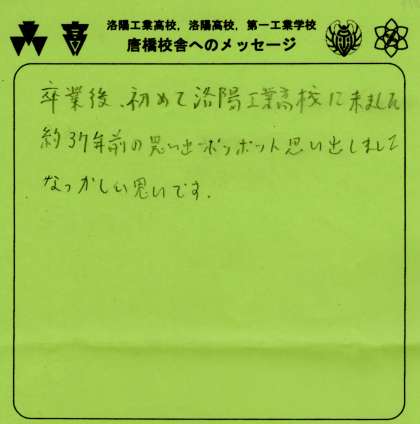 洛陽工業高校，洛陽高校，第一工業学校
唐橋校舎へのメッセージ
高
卒業後、初めて洛陽工業高校に来ました
約37年前の思い出ポツポツト思い出しまして
なつかしい思いです.